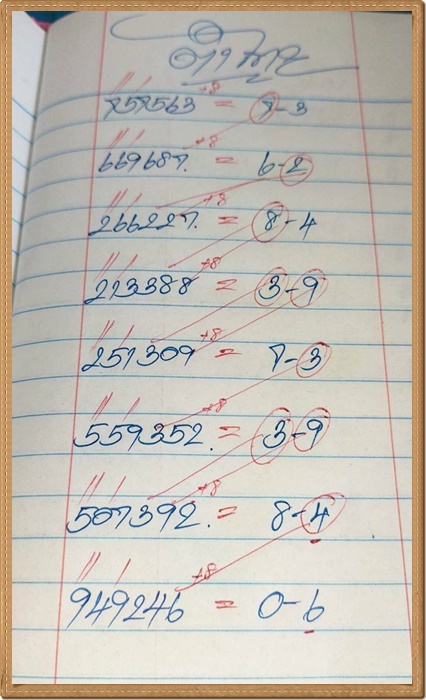 +8
757563 = 7-3
+8
669687. = 6-2
+8
266227. = 8-4
+8
213388 = 3-9
+8
251309 = 7-3
+8
559352. = 3-9
+8
507392. = 8-4
+8
949246 = 0-6